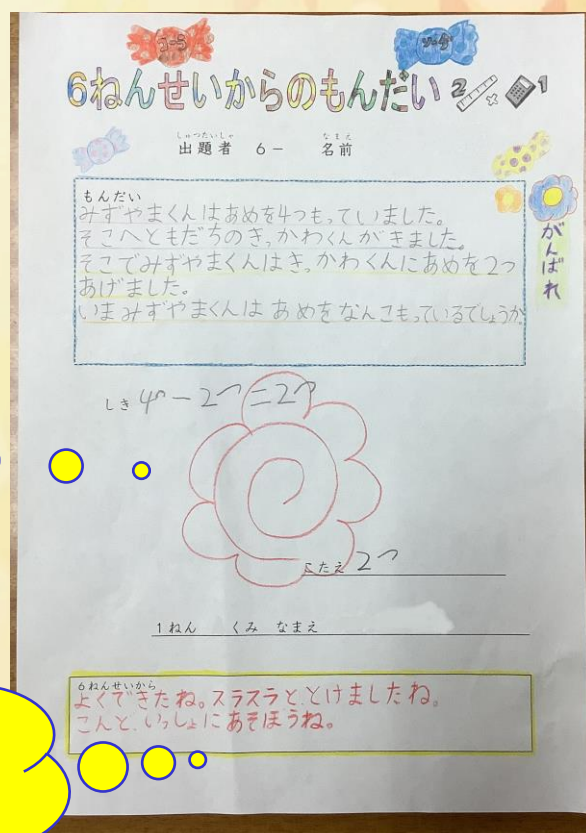 6ねんせいからのもんだい 2 × 1
しゅつだいしゃ なまえ
出題者 6- 名前
もんだい
みずやまくんはあめを4つもっていました。
そこへともだちのきっかわくんがきました。
そこでみずやまくんはきっかわくんにあめを2つ
あげました。
いまみずやまくんはあめをなんこもっているでしょうか。
がんばれ
しき 4つ-2つ=2つ
こたえ 2つ
1ねん くみ なまえ
6ねんせいから
よくできたね。スラスラととけましたね。
こんど、いっしょにあそぼうね。